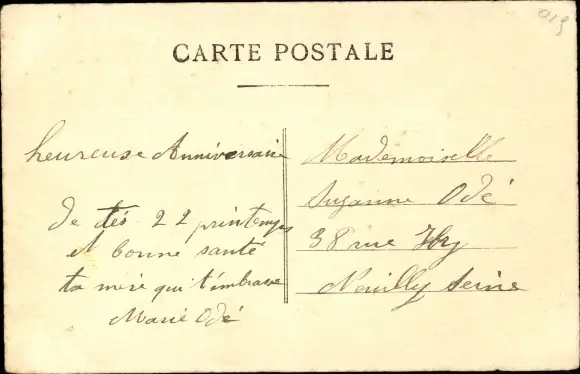 019
CARTE POSTALE
heureuse Anniversaire
de tes 22 printemps
et bonne santé
ta mère qui t'embrasse
Marie Odé
Mademoiselle
Suzanne Odé
38 rue Ybry
Neuilly Seine